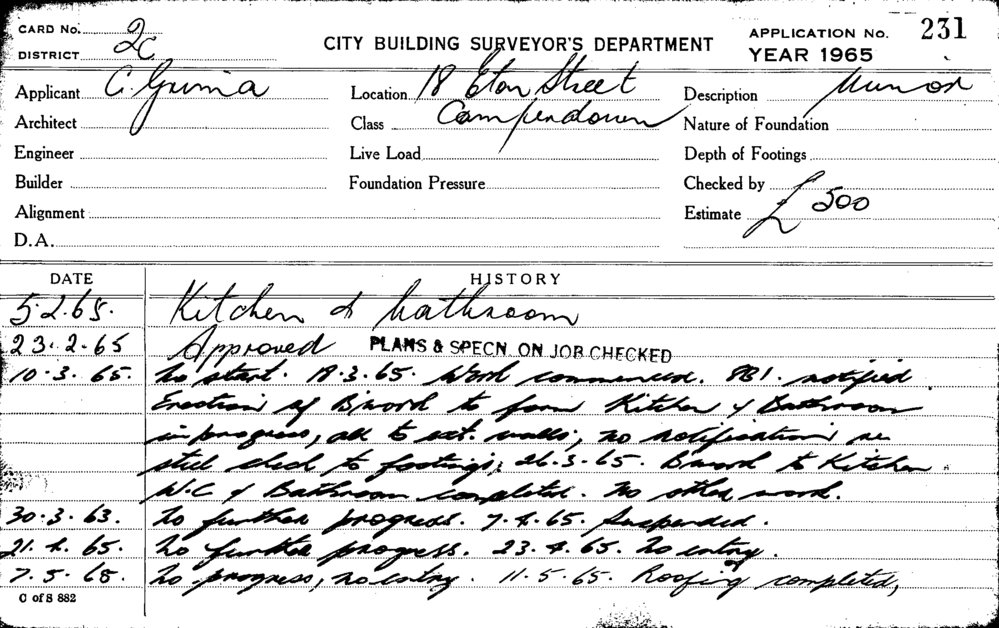 CARD No.
DISTRICT 2C
CITY BUILDING SURVEYOR'S DEPARTMENT
APPLICATION No. 231
YEAR 1965
Applicant C. Grima
Location 18 Eton Street
Description Minor
Architect
Class Camperdown
Nature of Foundation
Engineer
Live Load
Depth of Footings
Builder
Foundation Pressure
Checked by
Alignment
Estimate £ 500
D.A.
DATE HISTORY
5.2.65. Kitchen & bathroom
23.2.65 Approved PLANS & SPECN. ON JOB CHECKED
10.3.65. No start. 18.3.65. Work commenced. notified
Erection of Bwork to form Kitchen & Bathroom
in progress, to ext. walls; no notification re
steel to footings; 26.3.65. Bwork to Kitchen
W.C & Bathroom completed. No other work.
30.3.63. No further progress. 7.4.65. Suspended.
21.4.65. No further progress. 23.4.65. No entry.
7.5.65. No progress, no entry. 11.5.65. Roofing completed,
C of S 882